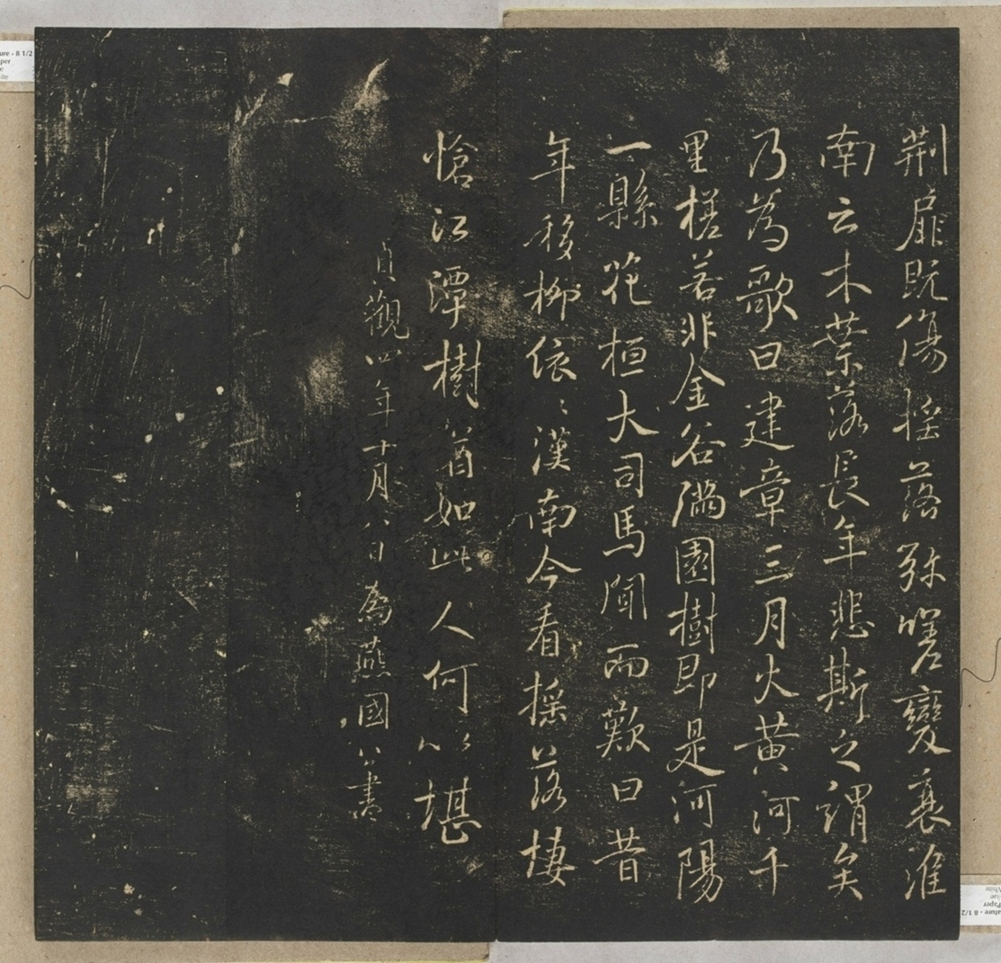 荆扉既傷揺落弥嗟變衰淮
南云木葉落長年悲斯之謂矣
乃為歌曰建章三月火黄河千
里槎若非金谷滿園樹即是河陽
一縣花桓大司馬聞而歎曰昔
年移柳依〻漢南今看揺落悽
愴江潭樹猶如此人何以堪
貞觀四年十月八日為燕國公書